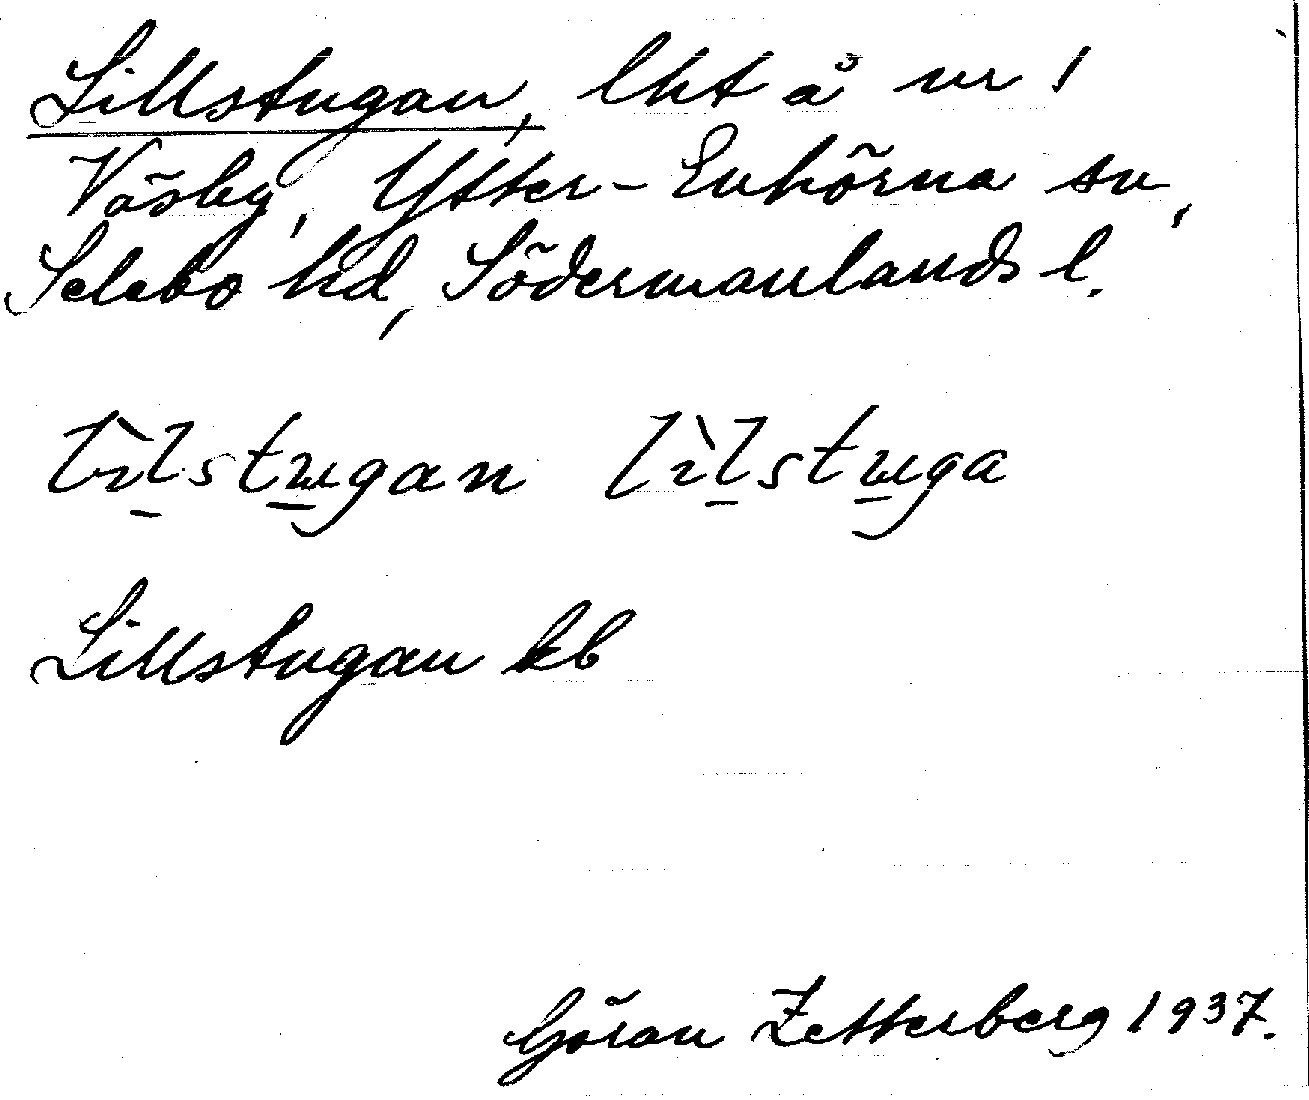 Lillstugan, lht å nr 1
Väsby, Ytter-Enhörna sn,
Selebo hd, Södermanlands l.
lìl̠stɯ̠gan lìl̠stɯ̠ga
Lillstugan kb
Göran Zetterberg 1937.